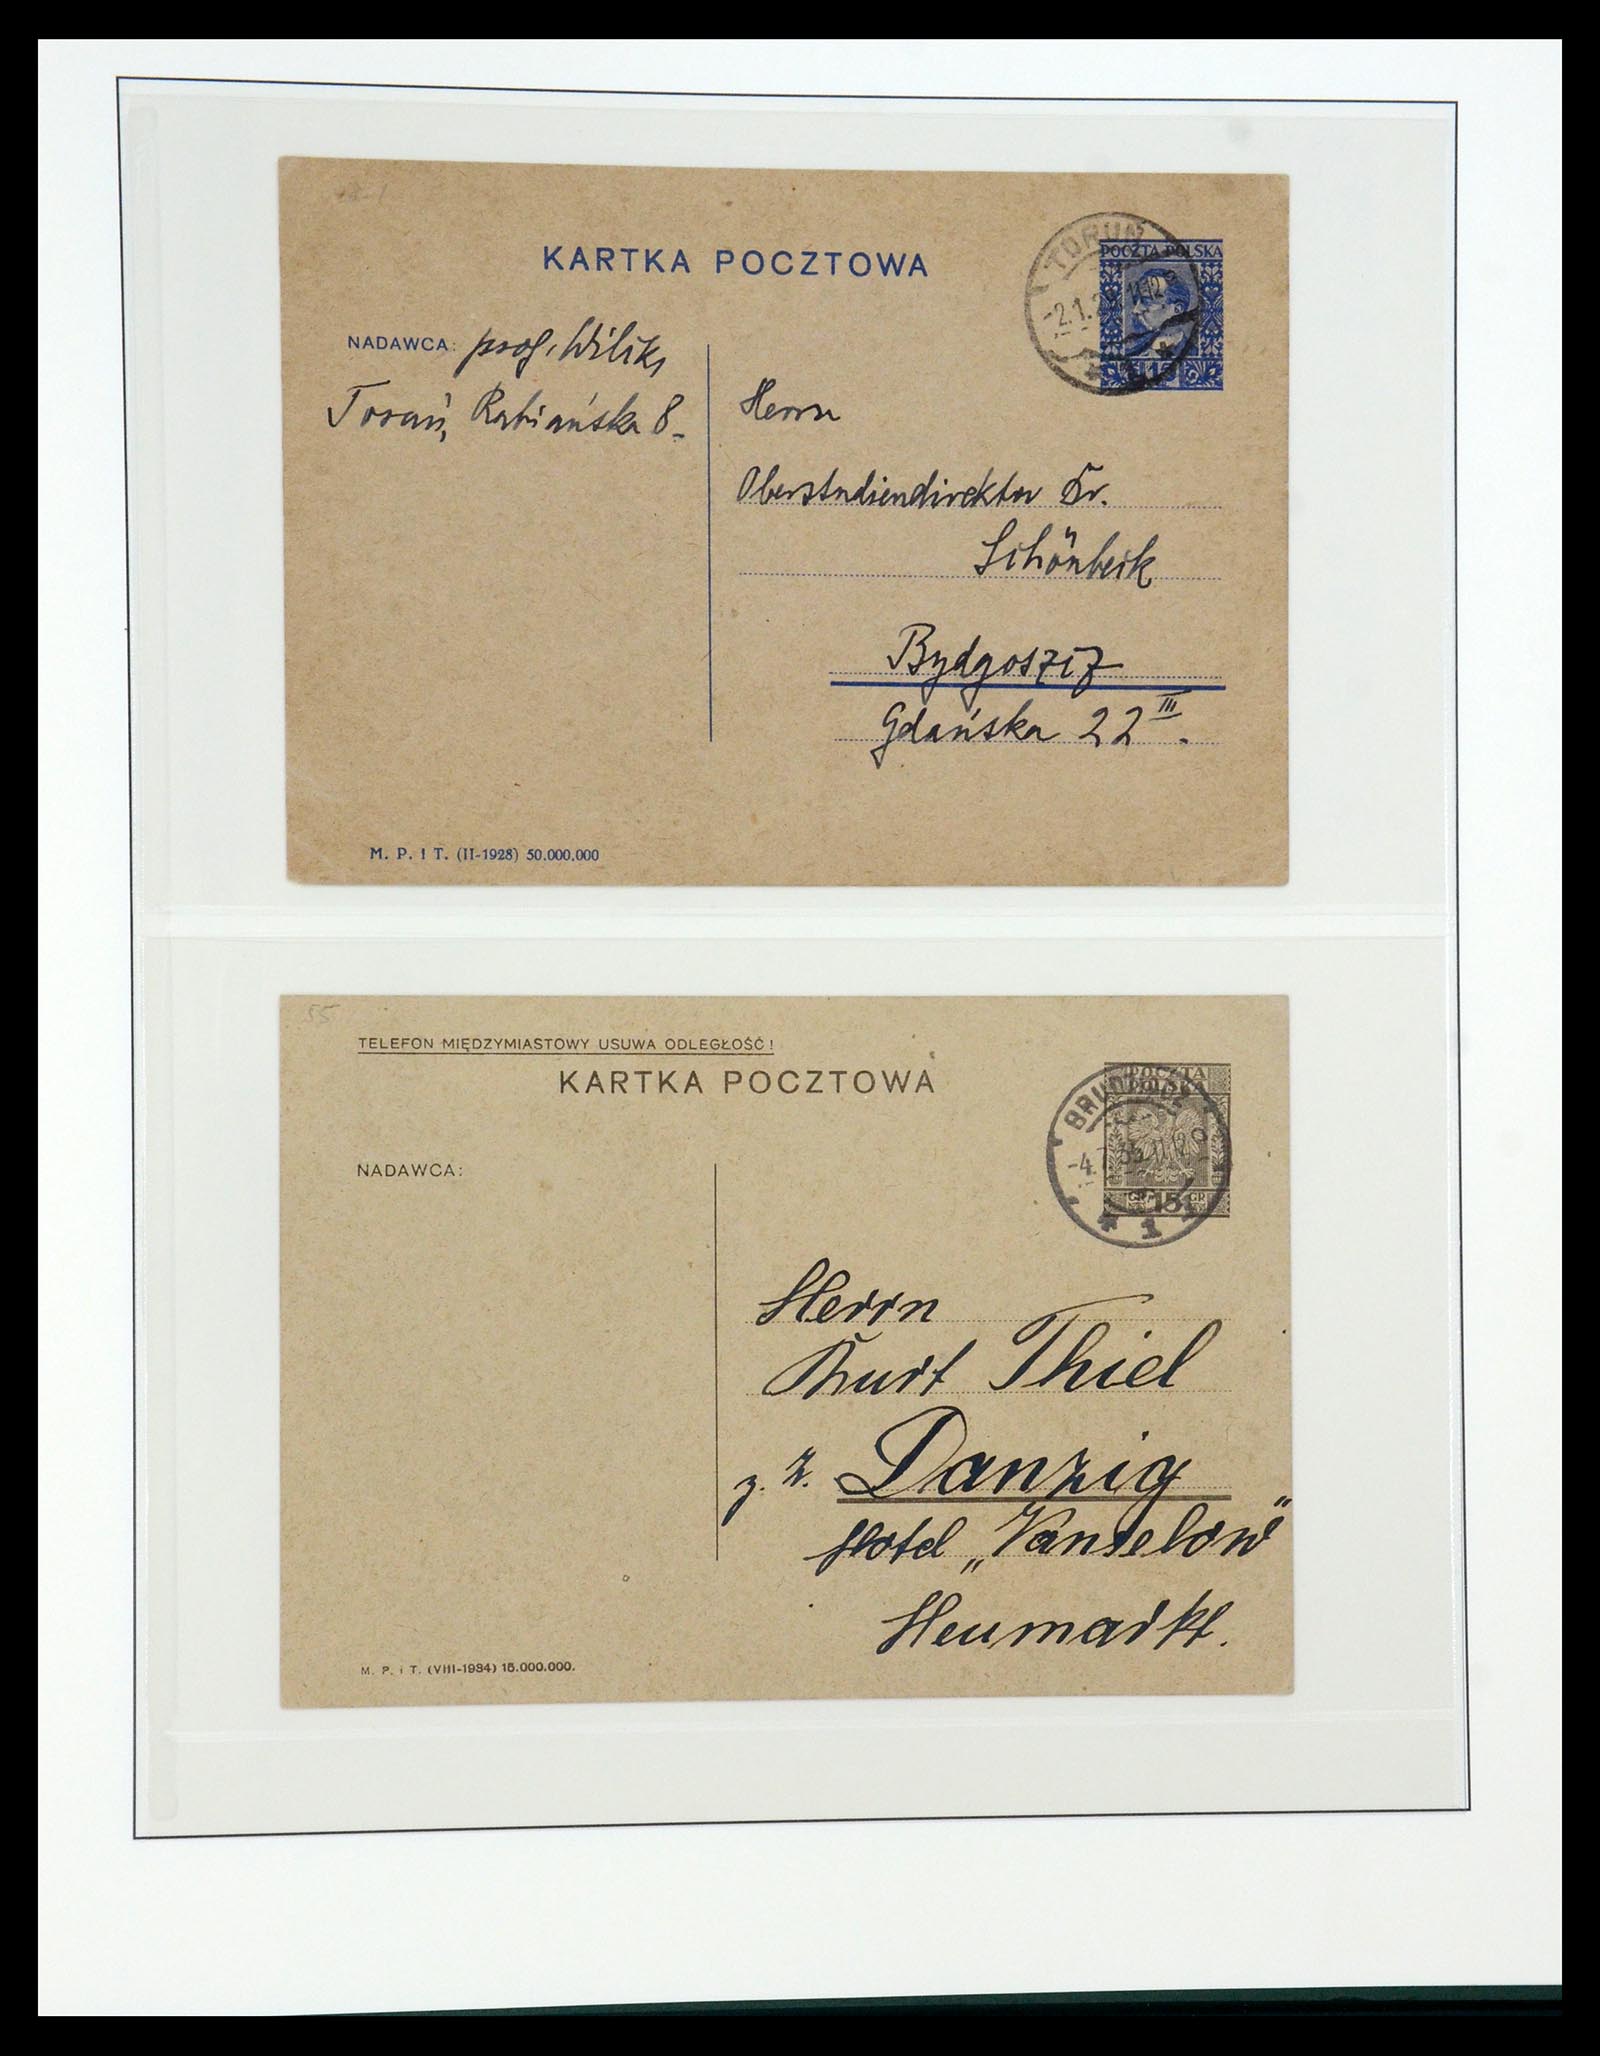 KARTKA POCZTOWA
POCZTA POLSKA
TORUŃ
-2.1.29 11-12
15
NADAWCA: prof. Wilik,
Toruń, Rabiańska 8-
Herrn
Oberstudiendirektor Dr.
Schönbeck
Bydgoszcz
Gdańska 22 III.
M. P. i T. (II-1928) 50.000.000
55
TELEFON MIĘDZYMIASTOWY USUWA ODLEGŁOŚĆ!
KARTKA POCZTOWA
POCZTA
POLSKA
GR. 15 GR
1
NADAWCA:
Herrn
Kurt Thiel
z. Z. Danzig
Hotel „Vanselow"
Heumarkt.
M. P. i T. (VIII-1934) 15.000.000.